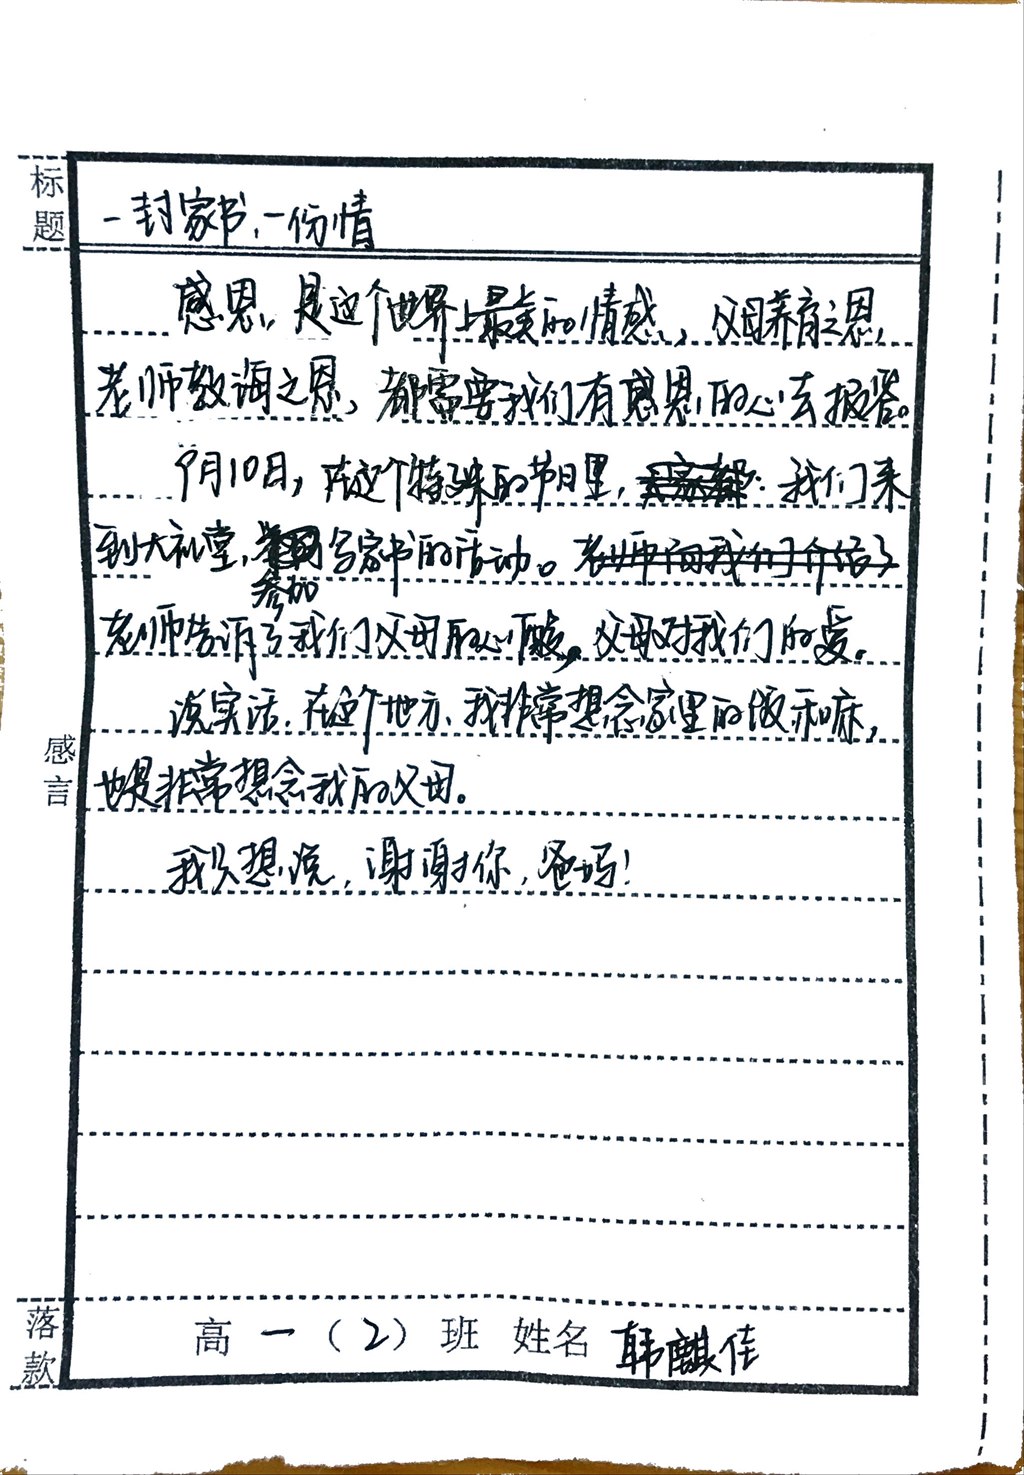 标题
一封家书，一份情
感恩，是这个世界上最美的情感，父母养育之恩，
老师教诲之恩，都需要我们有感恩的心去报答。
9月10日，在这个特殊的节日里，我们来
到大礼堂，参加写家书的活动。老师向我们介绍了
老师告诉了我们父母的心酸，父母对我们的爱。
说实话，在这个地方，我非常想念家里的饭和床，
也是非常想念我的父母。
我只想说，谢谢你，爸妈！
感言
落款
高一（2）班 姓名 韩麒佳